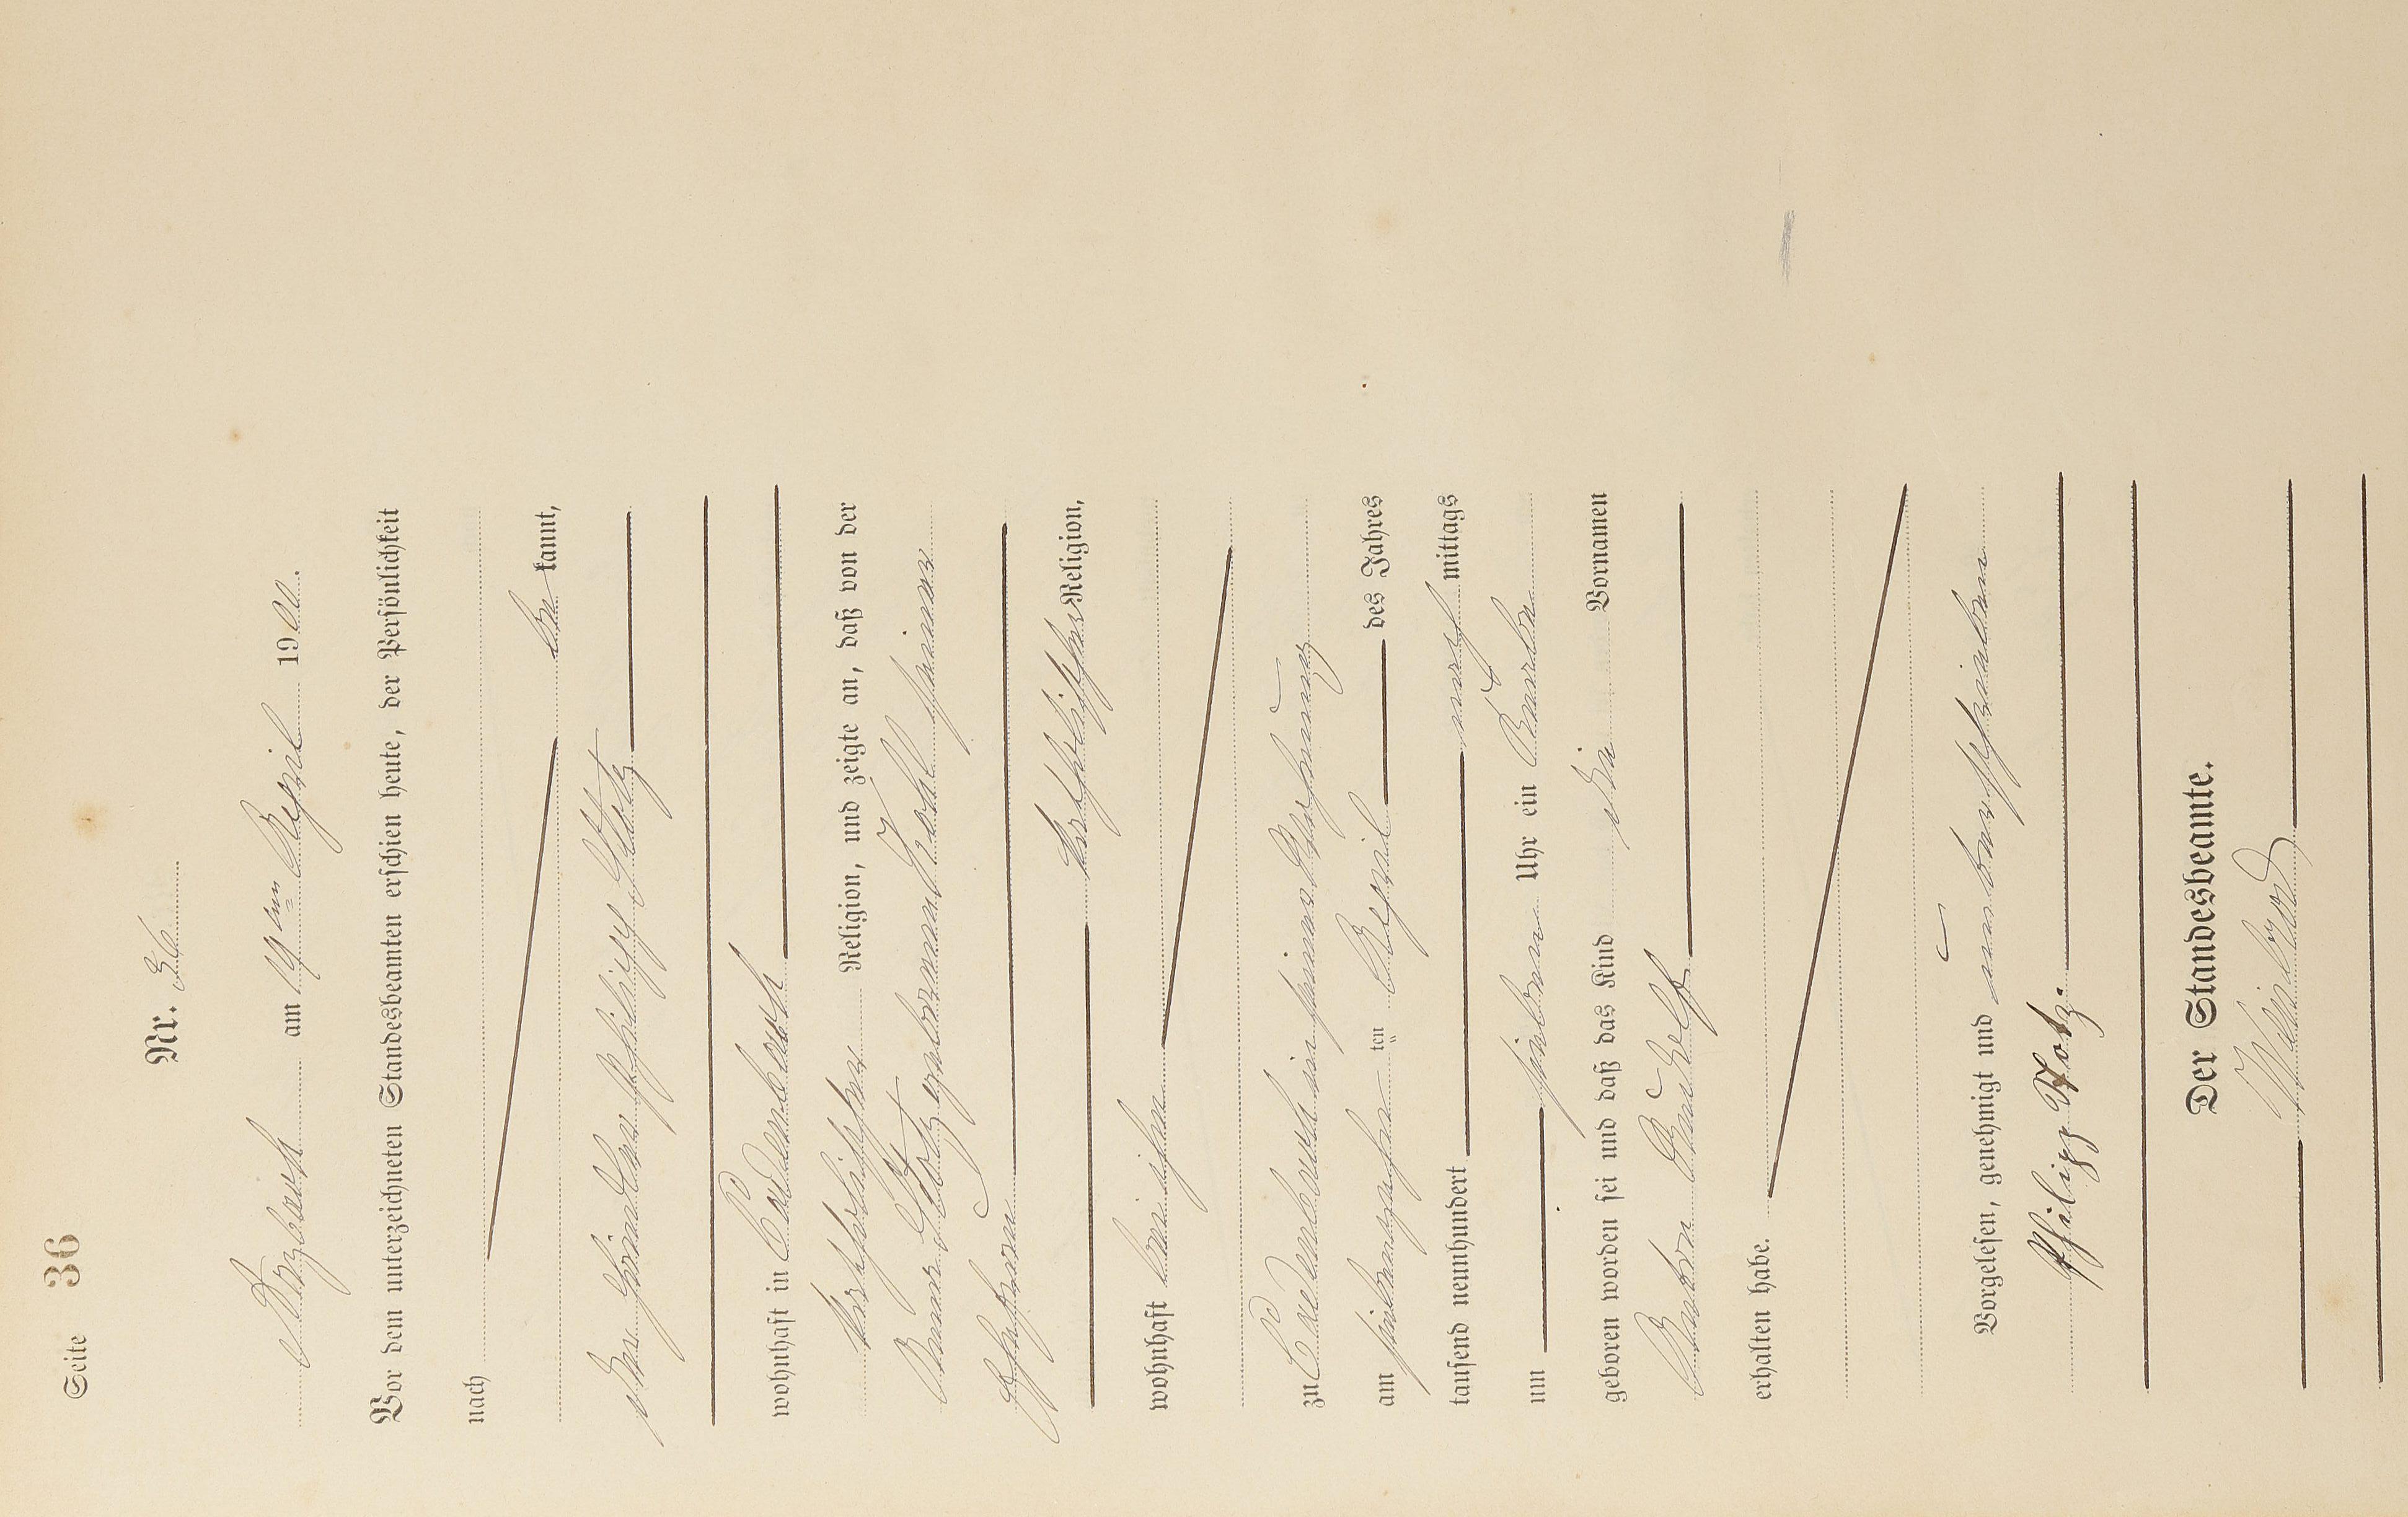 Seite 36
Nr. 36
Urzbach am 19ten April 1900.
Vor dem unterzeichneten Standesbeamten erschien heute, der Persönlichkeit
nach
be kannt,
der Händler Philipp Stotz
wohnhaft in Laudenbach
katholischer Religion, und zeigte an, daß von der
Anna Stotz geborenen Kohl seiner
Ehefrau
katholischer Religion,
wohnhaft bei ihm
zu Laudenbach in seiner Wohnung
am siebenzehn ten April des Jahres
tausend neunhundert nach mittags
um sieben Uhr ein Knabe
geboren worden sei und daß das Kind die Vornamen
Anton Rudolf
erhalten habe.
Vorgelesen, genehmigt und unterschrieben
Philipp Stotz.
Der Standesbeamte.